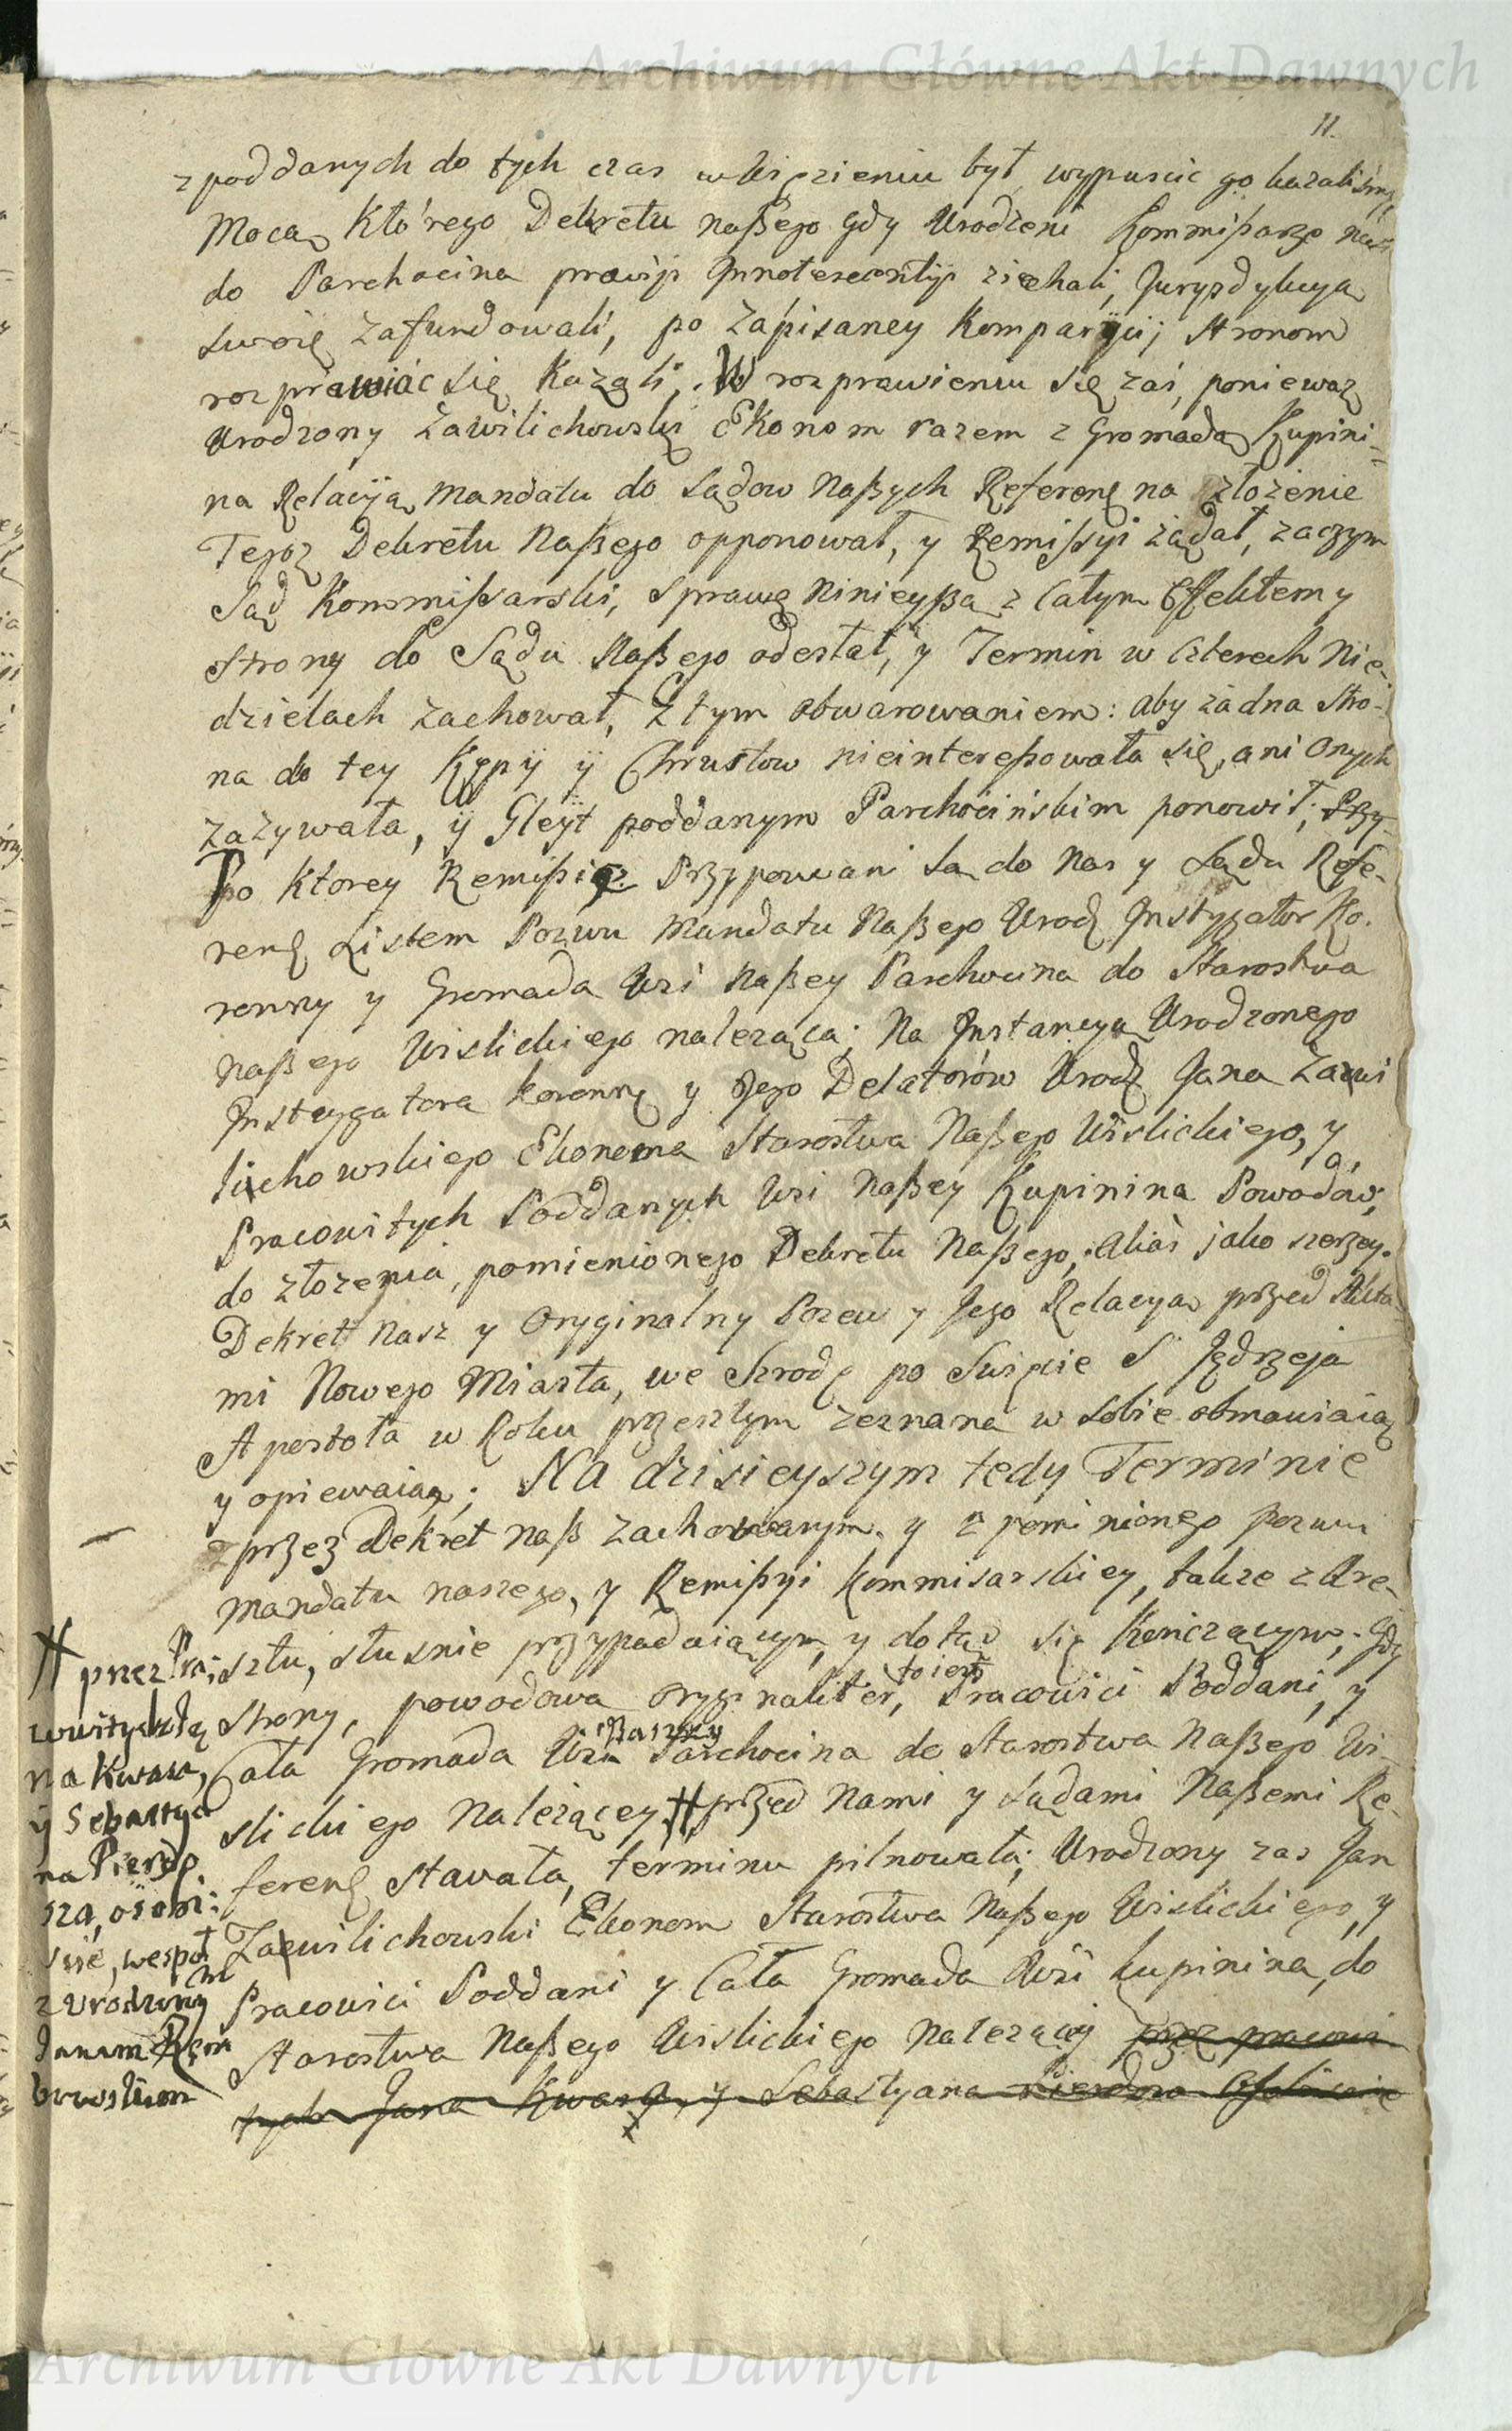 Archiwum Główne Akt Dawnych
11.
z poddanych do tych czas w Więzieniu był, wypuscic go kazalismy,
Mocą Którego Dekretu naßego gdy Urodzeni Kommißarze nasi
do Parchocina prawiji Innotescentÿi ziechali, Juryzdykcyą
swoię zafundowali, po Zapisaney Kompariÿi; Stronom
rozprawiac się Kazali. W rozprawieniu się zaś, poniewaz
Urodzony Zawilichowski Ekonom razem z Gromadą Kupini-
na Relacÿą Mandatu do Sądow Naßych Referen na złożenie
Tegoz Dekretu Naßego opponował, y Remißyi żądał, zaczym
Sąd Kommißarski, Sprawę Ninieyßą z Całym Effektem y
Strony do Sądu Naßego odesłał, y Termin w Czterech Nie-
dzielach zachował, Z tym obwarowaniem: aby żadna Stro-
na do tey Kępÿ ÿ Chrustow nieintereßowała się, ani onych
zażywała, ÿ Gleÿt poddanym Parchocińskim ponowił; Przy-
Po Ktorey Remißie Przypozwani są do Nas y Sądu Refe-
ren Listem Pozwu Mandatu Naßego Urodz Instygator Ko-
ronny y Gromada Wsi Naßey Parchocina do Starostwa
Naßego Wislickiego należąca; Na Instancyą Urodzonego
Instygatora koronn y Jego Delatorów Urodz Jana Zawi
lichowskiego Ekonoma Starostwa Naßego Wislickiego, y
Pracowitych Poddanych Wsi Naßey Kupinina Powodów,
do złożenia, pomienionego Dekretu Naßego, aliàs jako szerzey.
Dekret Nasz y Oryginalny Pozew y Jego Relacya przed Akta-
mi Nowego Miasta, we Srodę po Swięcie S Jędrzeja
Apostoła w Roku przeszłym zeznana w sobie obmawiaią
y opiewaią; Na dzisieyszym tedy Terminie
z przez Dekret naß zachowanym, y z pominionego pozwu
Mandatu naszego, y Remißyi Kommisarskiey, także z Are-
sztu, słusnie przypadaiącym, y dotąd się Kończącym; Gdy
Strony, powodowa oryginaliter, to iest Pracowici Poddani, y
Cała Gromada Wsi Naszey Parchocina do Starostwa Naßego Wi-
slickiego Należącey # przed Nami y Sądami Naßemi Re-
feren Stawała, terminu pilnowała; Urodzony zas Jan
Zawilichowski Ekonom Starostwa Naßego Wislickiego, y
Pracowici Poddani y Cała Gromada Wsi Kupinina, do
Starostwa Naßego Wislickiego Należącej przez pracowi
tych Jana Kwasa, y Sebastyana Pierdsza Osobiscie
# przez Pra:
cowitych Ja
na Kwasa,
ÿ Sebastya
na Pierdp
sza, osobi:
scie, wespoł
z Urodzonym
Janem
Archiwum Główne Akt Dawnych